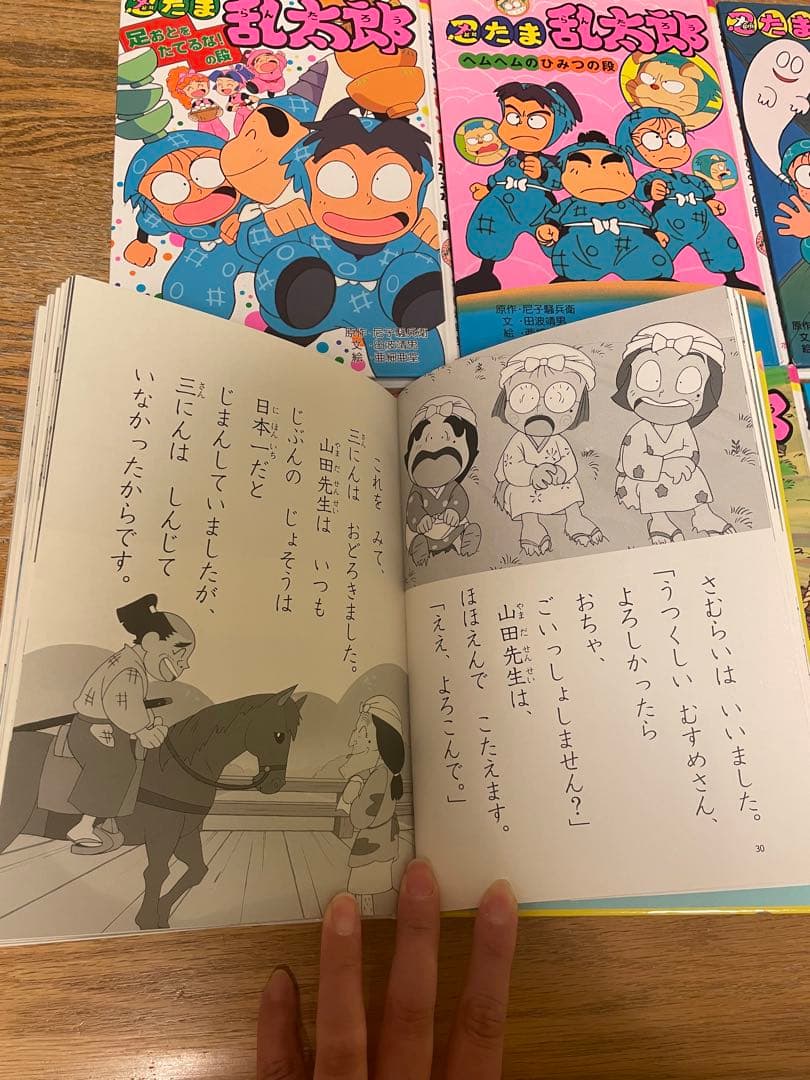 忍たま
乱太郎
らんたろう
足おとを
たてるな!
の段
原作・尼子騒兵衛
文・田波靖男
絵・亜細亜堂
忍たま
乱太郎
らんたろう
ヘムヘムのひみつの段
原作・尼子騒兵衛
文・田波靖男
絵
忍たま
さむらいは いいました。
「うつくしい むすめさん、
よろしかったら
おちゃ、
ごいっしょしません?」
山田先生は、
やまだせんせい
ほほえんで こたえます。
「ええ、よろこんで。」
30
これを みて、
三にんは おどろきました。
さん
山田先生は いつも
やまだせんせい
じぶんの じょそうは
日本一だと
にほんいち
じまんしていましたが、
三にんは しんじて
さん
いなかったからです。